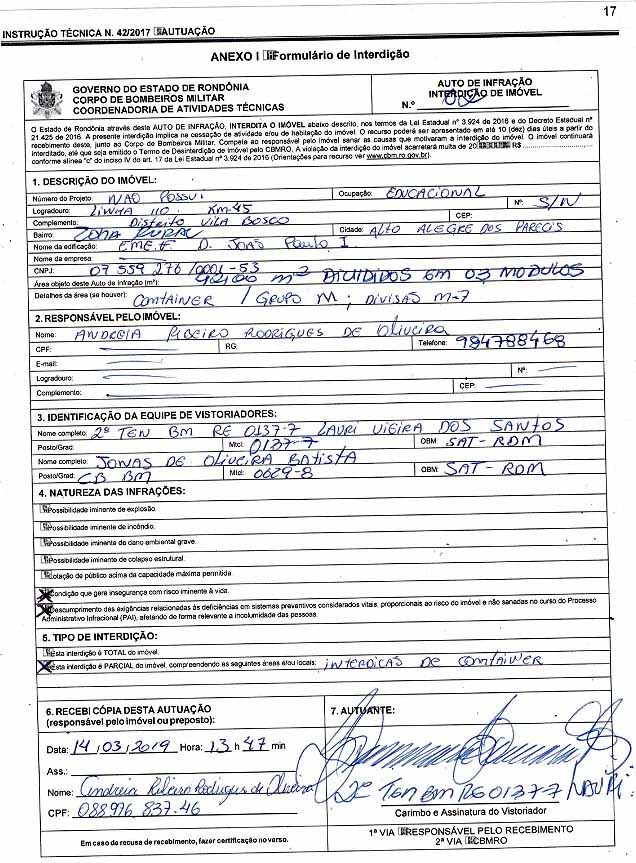 17
INSTRUÇÃO TÉCNICA N. 42/2017 AUTUAÇÃO
ANEXO I Formulário de Interdição
GOVERNO DO ESTADO DE RONDÔNIA
CORPO DE BOMBEIROS MILITAR
COORDENADORIA DE ATIVIDADES TÉCNICAS
AUTO DE INFRAÇÃO
INTERDIÇÃO DE IMÓVEL
N.º
O Estado de Rondônia através deste AUTO DE INFRAÇÃO, INTERDITA O IMÓVEL abaixo descrito, nos termos da Lei Estadual nº 3.924 de 2016 e do Decreto Estadual nº
21.425 de 2016. A presente interdição implica na cessação de atividade e/ou de habitação do imóvel. O recurso poderá ser apresentado em até 10 (dez) dias úteis a partir do
recebimento deste, junto ao Corpo de Bombeiros Militar. Compete ao responsável pelo imóvel sanar as causas que motivaram a interdição do imóvel. O imóvel continuará
interditado, até que seja emitido o Termo de Desinterdição de Imóvel pelo CBMRO. A violação da interdição do imóvel acarretará multa de 20 R$
conforme alínea "c" do inciso IV do art. 17 da Lei Estadual nº 3.924 de 2016 (Orientações para recurso ver www.cbm.ro.gov.br).
1. DESCRIÇÃO DO IMÓVEL:
Número do Projeto: NÃO POSSUI Ocupação: EDUCACIONAL
Logradouro: LINHA 110 Km-45 Nº: S/N
Complemento: Distrito VILA BOSCO CEP:
Bairro: ZONA RURAL Cidade: ALTO ALEGRE DOS PARECIS
Nome da edificação: EMEF D. JOÃO PAULO I
Nome da empresa:
CNPJ: 07 559 276/0001-53
Área objeto deste Auto de Infração (m²): m² DIVIDIDOS EM 03 MODULOS
Detalhes da área (se houver): CONTAINER / GRUPO M; DIVISÃO M-7
2. RESPONSÁVEL PELO IMÓVEL:
Nome: ANDREIA RIBEIRO RODRIGUES DE OLIVEIRA Telefone: 984788468
CPF: RG:
E-mail:
Logradouro: Nº:
Complemento: CEP:
3. IDENTIFICAÇÃO DA EQUIPE DE VISTORIADORES:
Nome completo: 2º TEN BM RE 0137-7 LAURI VIEIRA DOS SANTOS
Posto/Grad: Mtcl: 0137-7 OBM: SAT-RDM
Nome completo: JONAS DE OLIVEIRA BATISTA
Posto/Grad: CB BM Mtcl: 0629-8 OBM: SAT-RDM
4. NATUREZA DAS INFRAÇÕES:
Possibilidade iminente de explosão.
Possibilidade iminente de incêndio.
Possibilidade iminente de dano ambiental grave.
Possibilidade iminente de colapso estrutural.
Lotação de público acima da capacidade máxima permitida.
Condição que gere insegurança com risco iminente à vida.
Descumprimento das exigências relacionadas às deficiências em sistemas preventivos considerados vitais, proporcionais ao risco do imóvel e não sanadas no curso do Processo
Administrativo Infracional (PAI), afetando de forma relevante a incolumidade das pessoas.
5. TIPO DE INTERDIÇÃO:
Esta interdição é TOTAL do imóvel.
Esta interdição é PARCIAL do imóvel, compreendendo as seguintes áreas e/ou locais: INTERDICAS DE CONTAINER
6. RECEBI CÓPIA DESTA AUTUAÇÃO
(responsável pelo imóvel ou preposto):
Data: 14/03/2019 Hora: 13 h 47 min
Ass.:
Nome: Andreia Ribeiro Rodrigues de Oliveira
CPF: 088976 837-46
Em caso de recusa de recebimento, fazer certificação no verso.
7. AUTUANTE:
2º TEN BM RE 0137-7 LAURI
Carimbo e Assinatura do Vistoriador
1ª VIA RESPONSÁVEL PELO RECEBIMENTO
2ª VIA CBMRO